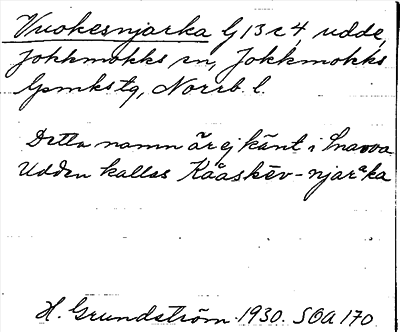 Vuokesnjarka G 13 c 4, udde,
Jokkmokks sn, Jokkmokks
lpmkstg, Norrb. l.
Detta namn är ej känt i Snavva
Udden kallas Kååskēv-njarᵃka
H. Grundström. 1930. SOA 170.